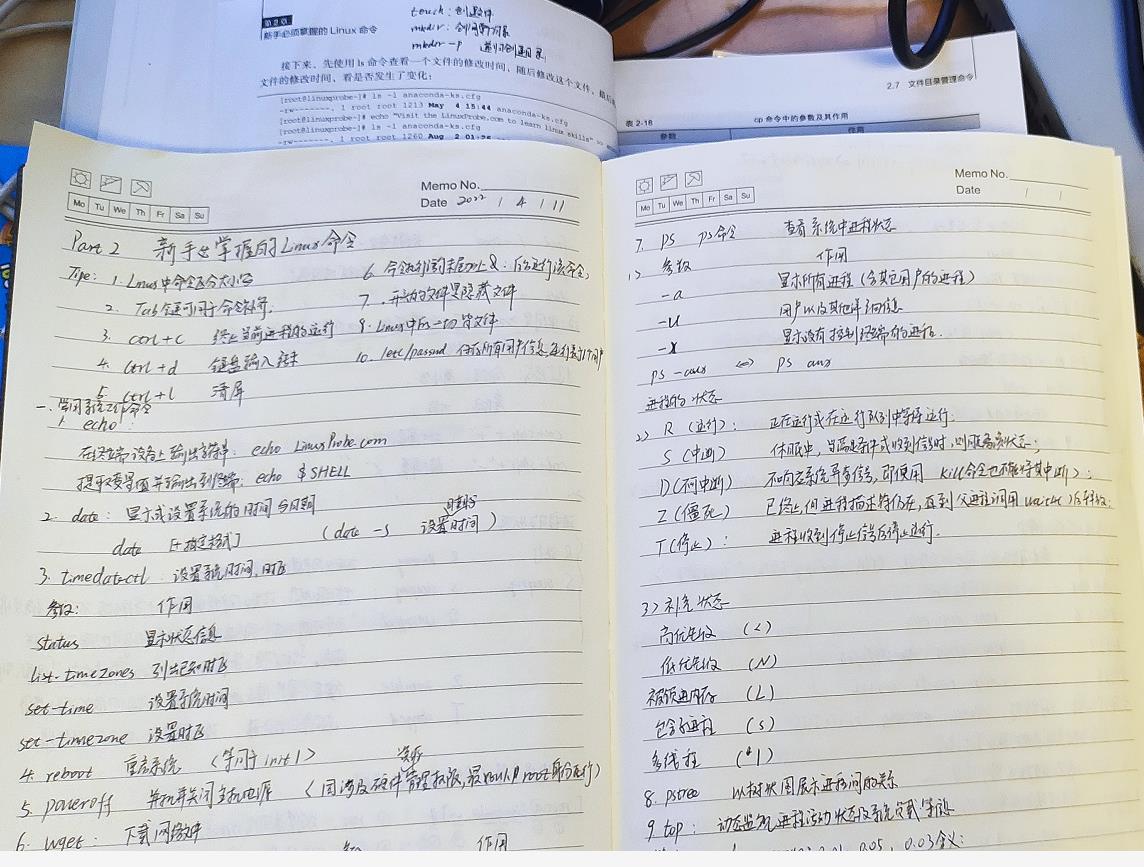 第2章
新手必须掌握的 Linux 命令
touch：创建文件
mkdir：创建新目录
mkdir -p 递归创建目录
接下来，先使用 ls 命令查看一个文件的修改时间，随后修改这个文件，最后
文件的修改时间，看是否发生了变化：
[root@linuxprobe~]# ls -l anaconda-ks.cfg
-rw-------. 1 root root 1213 May 4 15:44 anaconda-ks.cfg
[root@linuxprobe~]# echo "Visit the LinuxProbe.com to learn linux skills" >>
[root@linuxprobe~]# ls -l anaconda-ks.cfg
-rw-------. 1 root root 1260 Aug 2 01:26
2.7 文件目录管理命令
表 2-18 cp 命令中的参数及其作用
参数 作用
Memo No.
Date 2022 / 4 / 11
Mo Tu We Th Fr Sa Su
Part 2 新手必掌握的Linux命令
Tips: 1. Linux中命令区分大小写
2. Tab键可用于命令补齐.
3. ctrl + c 终止当前进程的运行
4. ctrl + d 键盘输入结束
5. ctrl + l 清屏
6. 命令执行时末尾加上&：后台运行该命令;
7. . 开头的文件是隐藏文件
9. Linux中的一切皆文件
10. /etc/passwd 保存所有用户信息,每行表示1个用户
一. 常用系统工作命令
1. echo:
在终端设备上输出字符串: echo LinuxProbe.com
提取变量值并输出到终端: echo $SHELL
2. date: 显示或设置系统的时间与日期
date [+指定格式] (date -s 设置时间)
3. timedatectl 设置系统时间,时区
参数: 作用
status 显示状态信息
list-timezones 列出已知时区
set-time 设置系统时间
set-timezone 设置时区
4. reboot 重启系统 <等同于 init 1>
5. poweroff 并机并关闭主机电源 <因涉及硬件资源管理权限,最好以root身份运行>
6. wget: 下载网络文件
参数 作用
Memo No.
Date / /
Mo Tu We Th Fr Sa Su
7. ps ps命令 查看系统中进程状态
1> 参数 作用
-a 显示所有进程 (含其它用户的进程)
-u 用户以及其他详细信息
-x 显示没有控制终端的进程
ps -aux <=> ps aux
进程的状态
2> R (运行): 正在运行或在运行队列中等待运行.
S (中断) 休眠中，当满足条件或收到信号时,则脱离该状态;
D (不可中断) 不响应系统异步信号，即便用 kill命令也不能将其中断;
Z (僵死) 已终止,但进程描述符仍在,直到父进程调用wait4()后释放;
T (停止): 进程收到停止信号后停止运行.
3> 补充状态
高优先级 (<)
低优先级 (N)
被锁进内存 (L)
包含子进程 (s)
多线程 (l)
8. pstree 以树状图展示进程间的关系
9. top: 动态监视进程活动状态及系统负载等信息
0.05, 0.03含义: